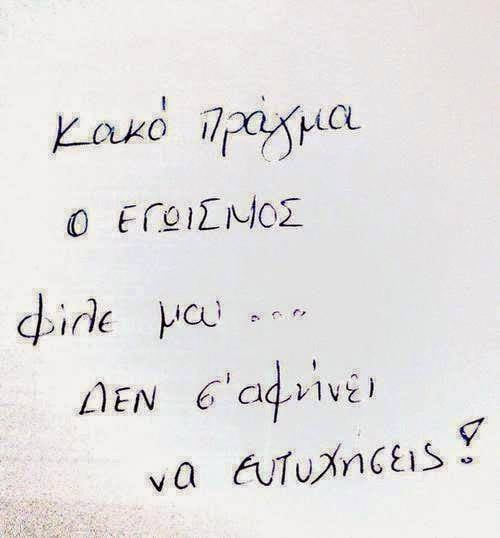 Κακό πράγμα
ο ΕΓΩΙΣΜΟΣ
φίλε μου ....
ΔΕΝ σ'αφήνει
να ευτυχήσεις!